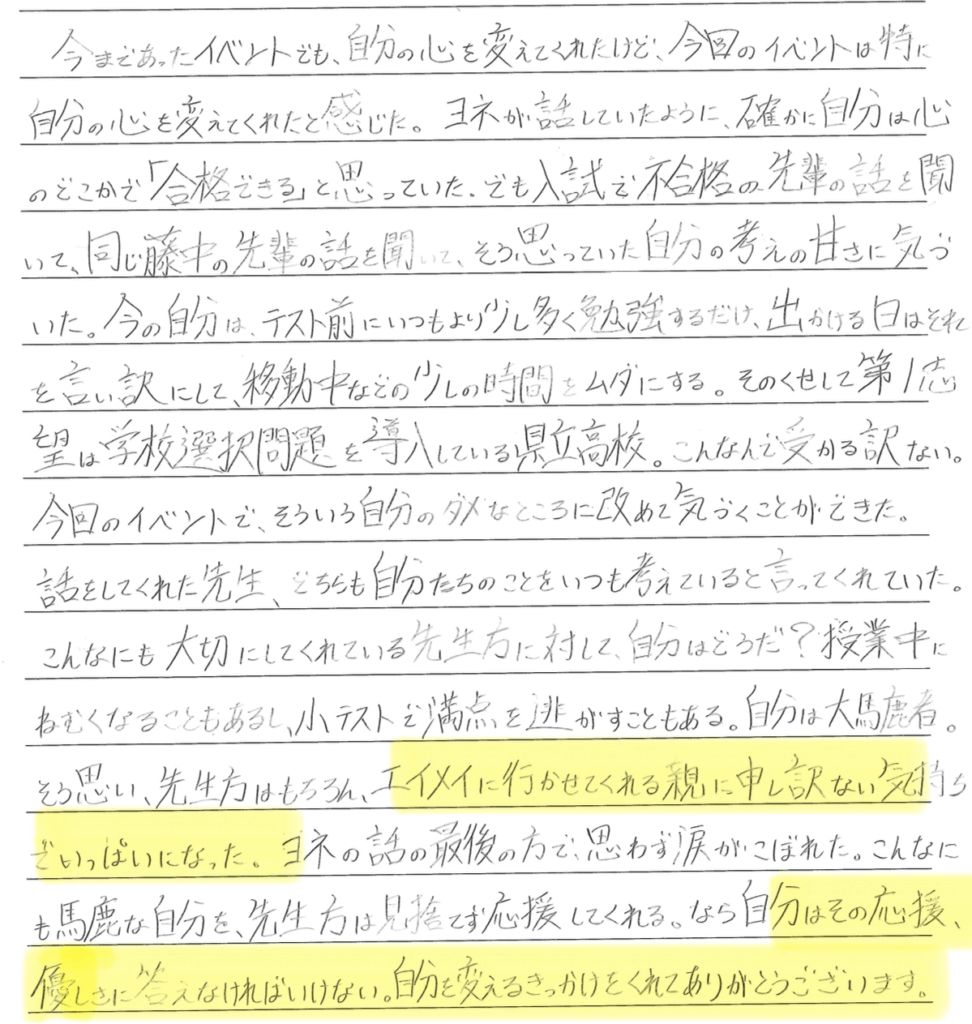 今まであったイベントでも、自分の心を変えてくれたけど、今回のイベントは特に
自分の心を変えてくれたと感じた。ヨネが話していたように、確かに自分は心
のどこかで「合格できる」と思っていた。でも入試で不合格の先輩の話を聞
いて、同じ藤中の先輩の話を聞いて、そう思っていた自分の考えの甘さに気づ
いた。今の自分は、テスト前にいつもより少し多く勉強するだけ、出かける日はそれ
を言い訳にして、移動中などの少しの時間をムダにする。そのくせして第1志
望は学校選択問題を導入している県立高校。こんなんで受かる訳ない。
今回のイベントで、そういう自分のダメなところに改めて気づくことができた。
話をしてくれた先生、どちらも自分たちのことをいつも考えていると言ってくれていた。
こんなにも大切にしてくれている先生方に対して、自分はどうだ?授業中に
ねむくなることもあるし、小テストで満点を逃がすこともある。自分は大馬鹿者。
そう思い、先生方はもちろん、エイメイに行かせてくれる親に申し訳ない気持ち
でいっぱいになった。ヨネの話の最後の方で、思わず涙がこぼれた。こんなに
も馬鹿な自分を、先生方は見捨てず応援してくれる。なら自分はその応援、
優しさに答えなければいけない。自分を変えるきっかけをくれてありがとうございます。